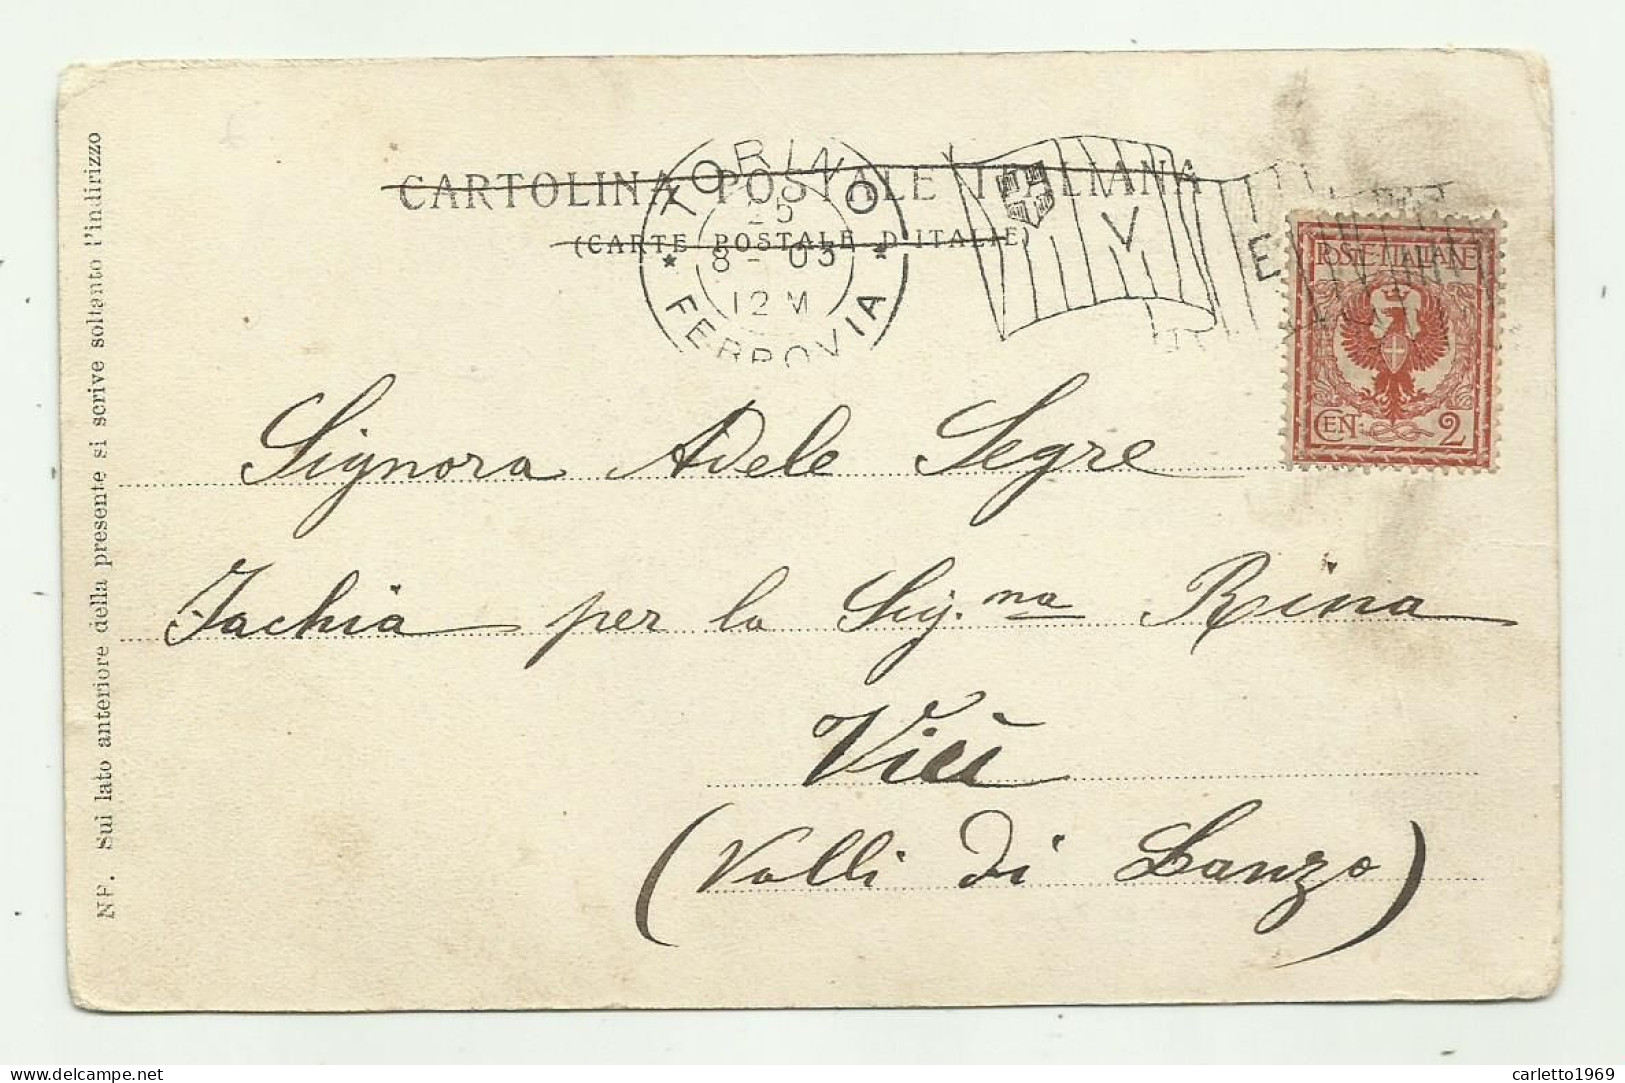 CARTOLINA POSTALE ITALIANA
(CARTE POSTALE D'ITALIE)
TORINO
25
8 - 03
12 M
* FERROVIA *
V E
POSTE ITALIANE
CEN. 2
Signora Adele Segre
Jachia per la Sig.na Rina
Viù
(Valli di Lanzo)
NF. Sul lato anteriore della presente si scrive soltanto l'indirizzo
carletto1969